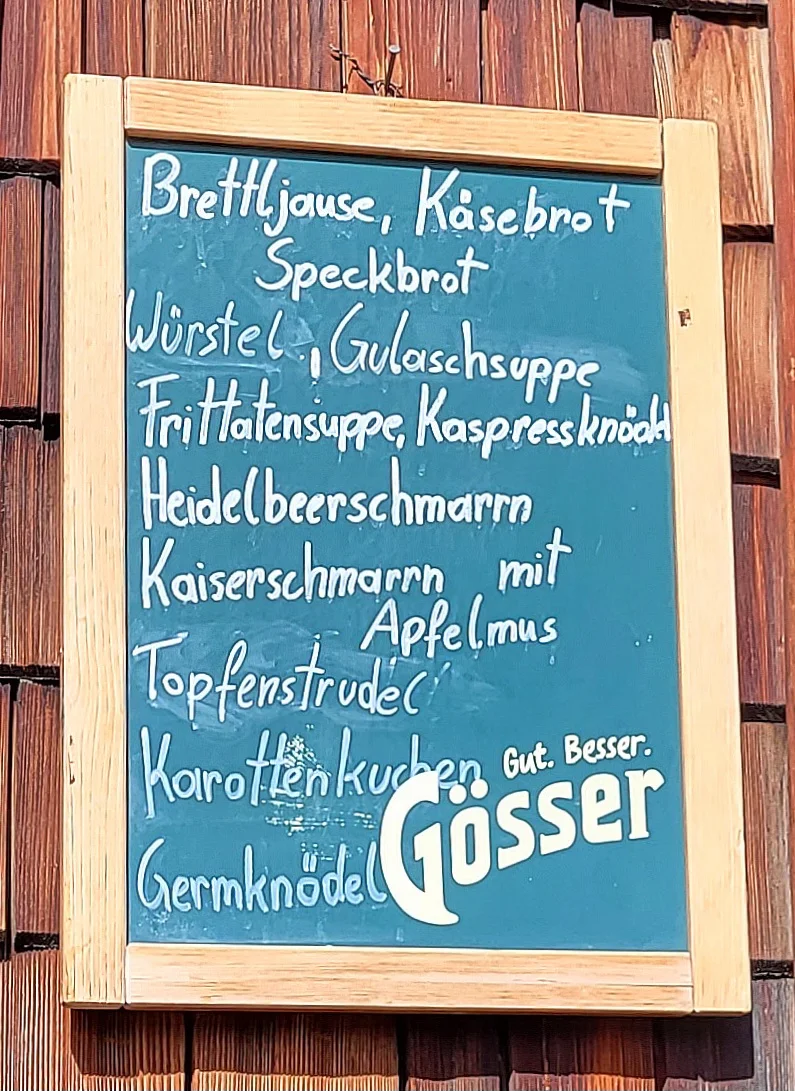 Brettljause, Käsebrot
Speckbrot
Würstel, Gulaschsuppe
Frittatensuppe, Kaspressknödl
Heidelbeerschmarrn
Kaiserschmarrn mit
Apfelmus
Topfenstrudel
Karottenkuchen
Gut. Besser.
Gösser
Germknödel